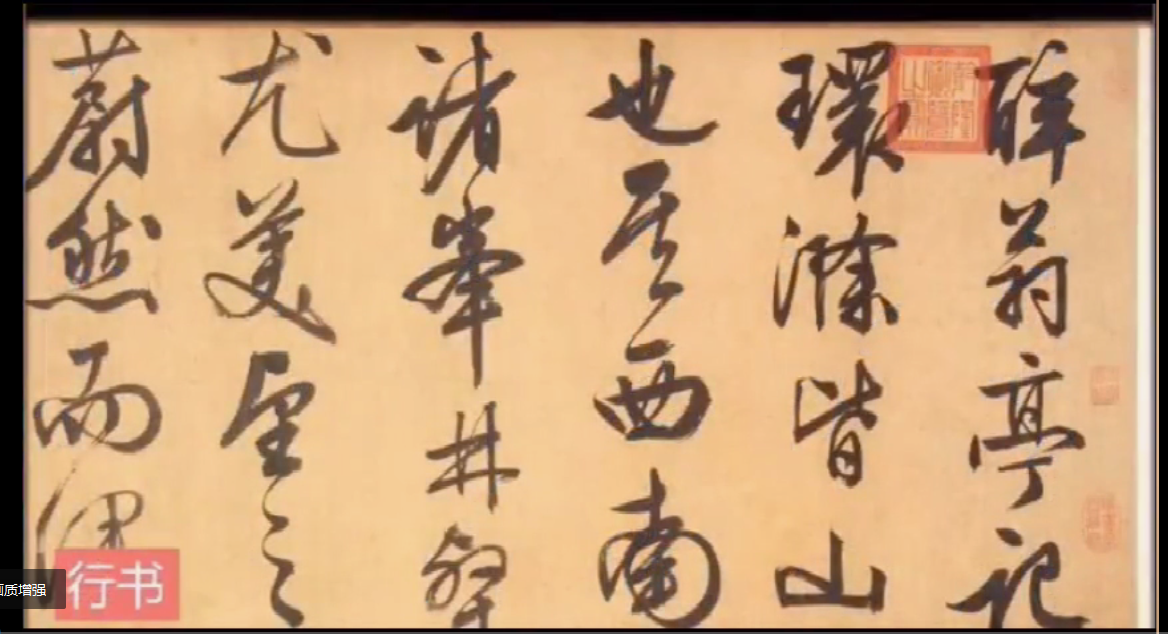 醉翁亭記
環滁皆山
也其西南
諸峯林壑
尤美望之
蔚然而深
行书
画质增强